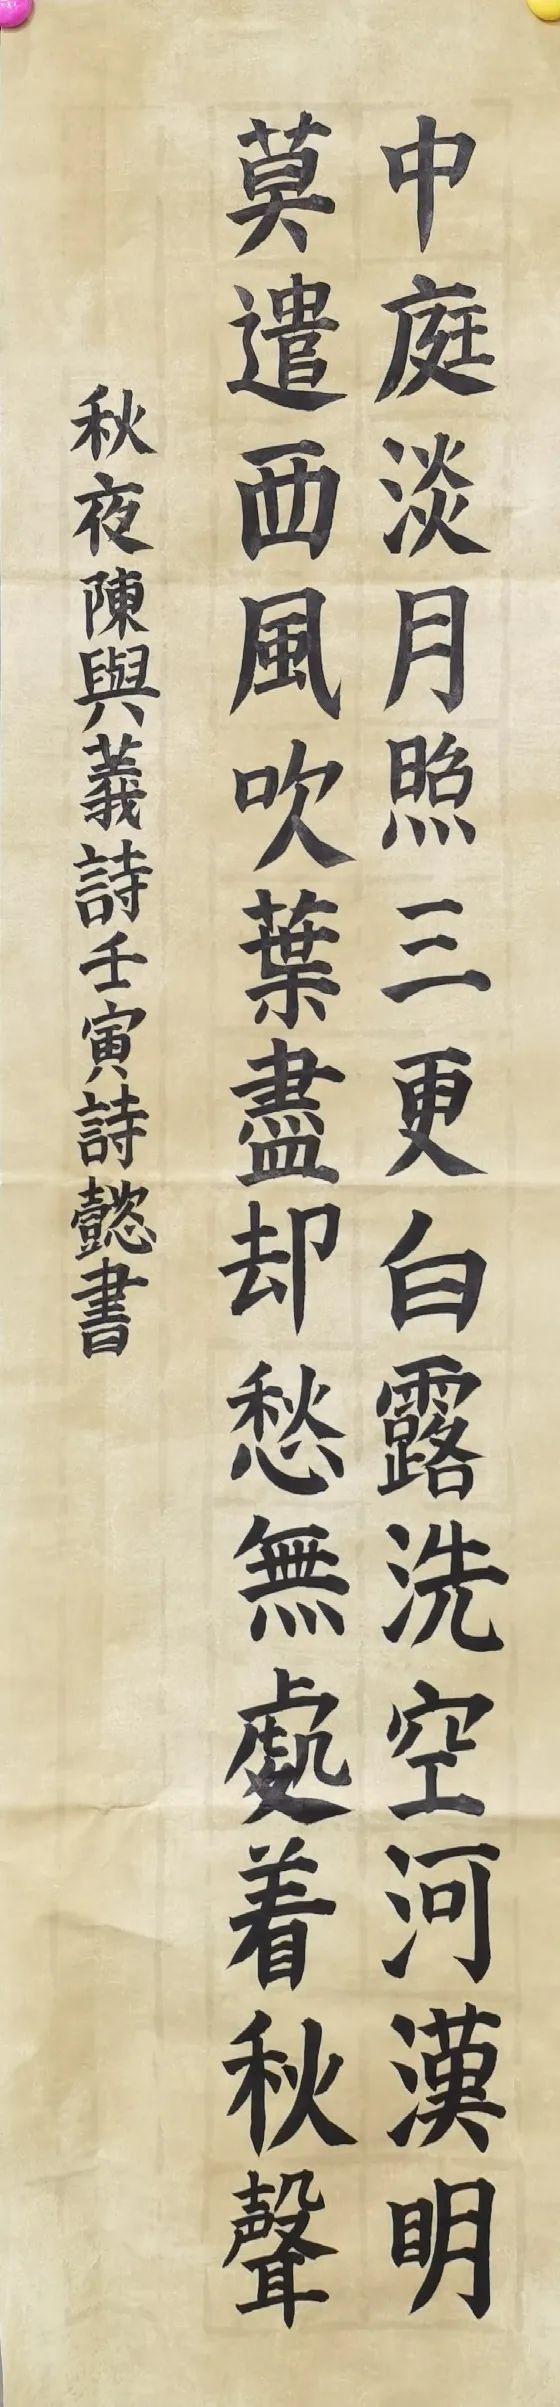 中庭淡月照三更白露洗空河漢明
莫遣西風吹葉盡却愁無處着秋聲
秋夜陳與義詩壬寅詩懿書